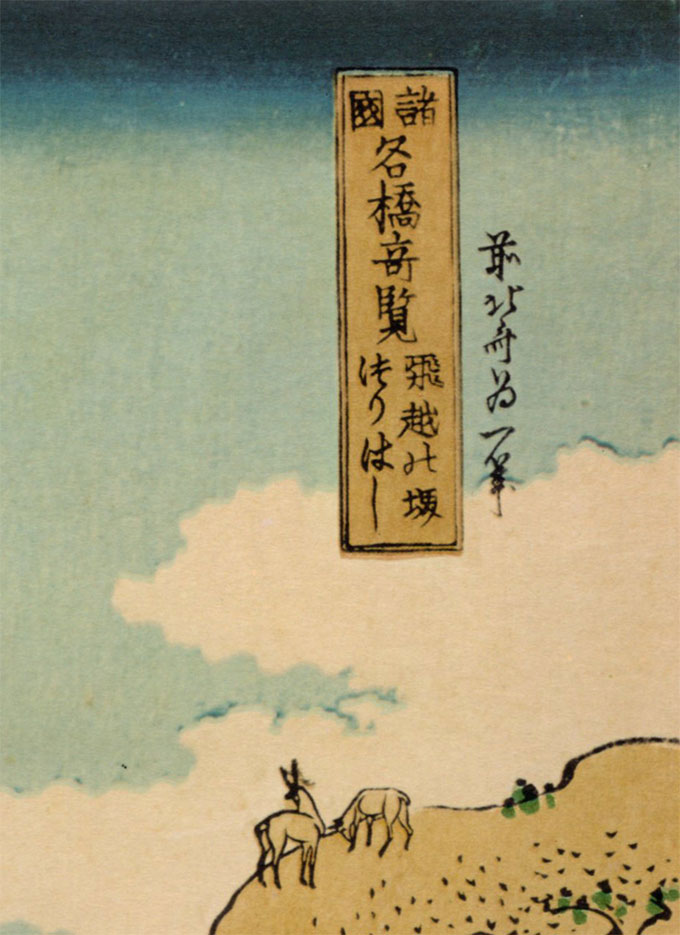 前北斎為一筆
諸國
名橋竒覧
飛越の堺
つりはし